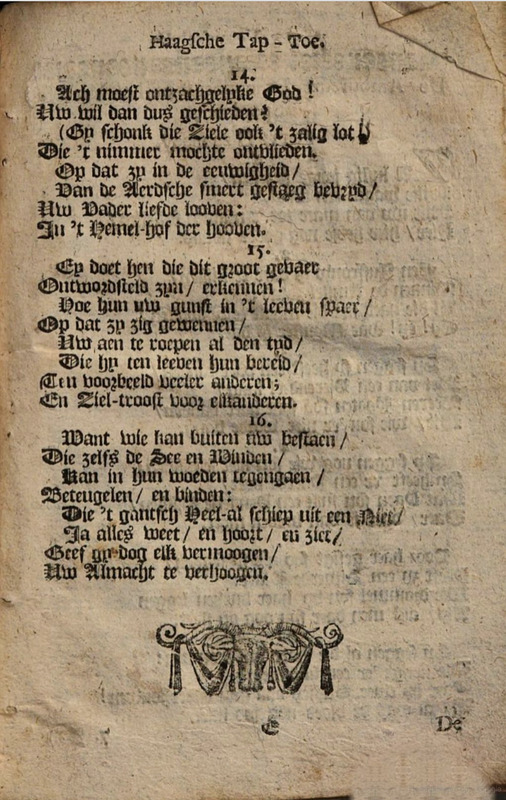 Haagsche Tap-Toe.
14.
Ach moest ontzachgelyke God!
Uw wil dan dus geschieden?
(Gy schonk die Ziele ook 't zalig lot!)
Die 't nimmer mochte ontvlieden.
Op dat zy in de eeuwigheid/
Van de Aerdsche smert gestaeg bevryd/
Uw Vader liefde looven:
In 't Hemel-hof der hooven.
15.
Ey doet hen die dit groot gevaer
Ontworsteld zyn/ erkennen!
Hoe hun uw gunst in 't leeven spaer/
Op dat zy zig gewennen/
Uw aen te roepen al den tyd/
Die hy ten leeven hun bereid/
Ten voorbeeld veeler anderen;
En Ziel-troost voor elkanderen.
16.
Want wie kan buiten uw bestaen/
Die zelfs de See en Winden/
Kan in hun woeden tegengaen/
Beteugelen/ en binden:
Die 't gantsch Heel-al schiep uit een Niet/
Ja alles weet/ en hoort/ en ziet/
Geef gy dog elk vermoogen/
Uw Almacht te verhoogen.
E
De